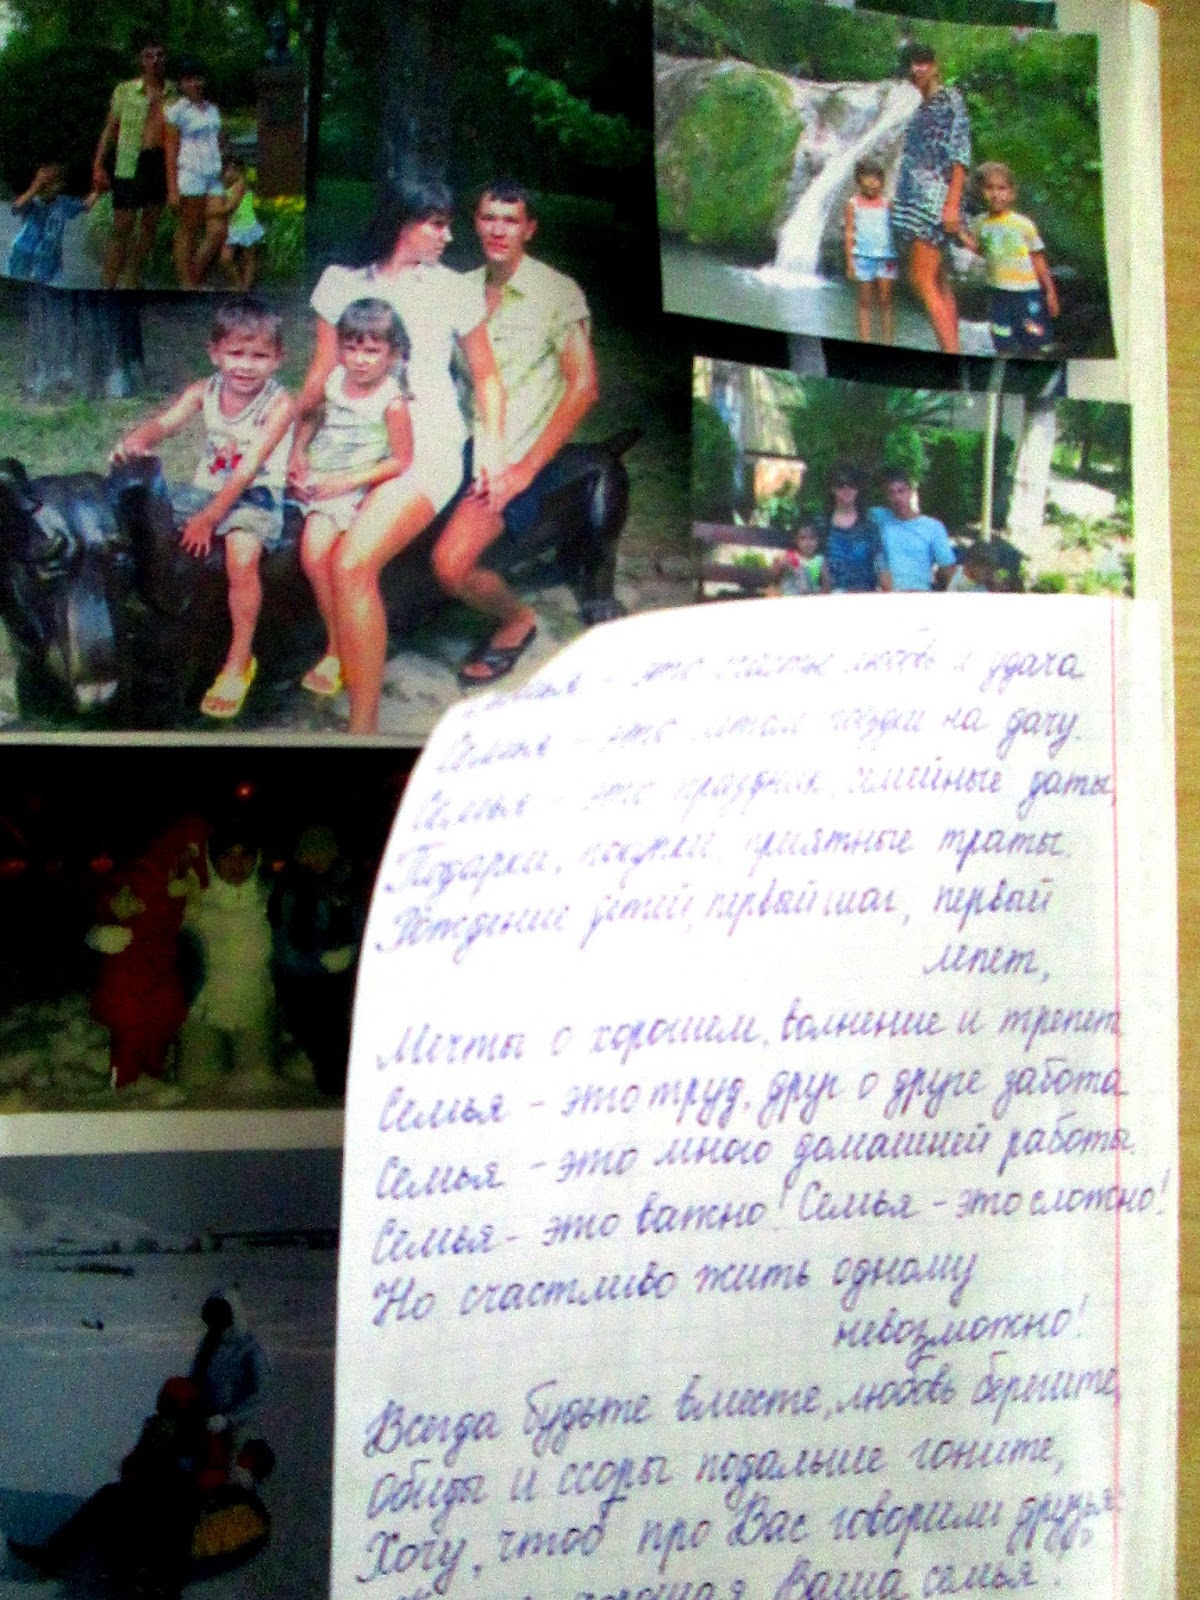 Семья - это счастье любовь и удача
Семья - это летом поездки на дачу.
Семья - это праздник, семейные даты,
Подарки, покупки, приятные траты.
Рождение детей, первый шаг, первый
лепет,
Мечты о хорошем, волнение и трепет
Семья - это труд, друг о друге забота
Семья - это много домашней работы.
Семья - это важно! Семья - это сложно!
Но счастливо жить одному
невозможно!
Всегда будьте вместе, любовь берегите,
Обиды и ссоры подальше гоните,
Хочу, чтоб про Вас говорили друзья
хорошая Ваша семья!